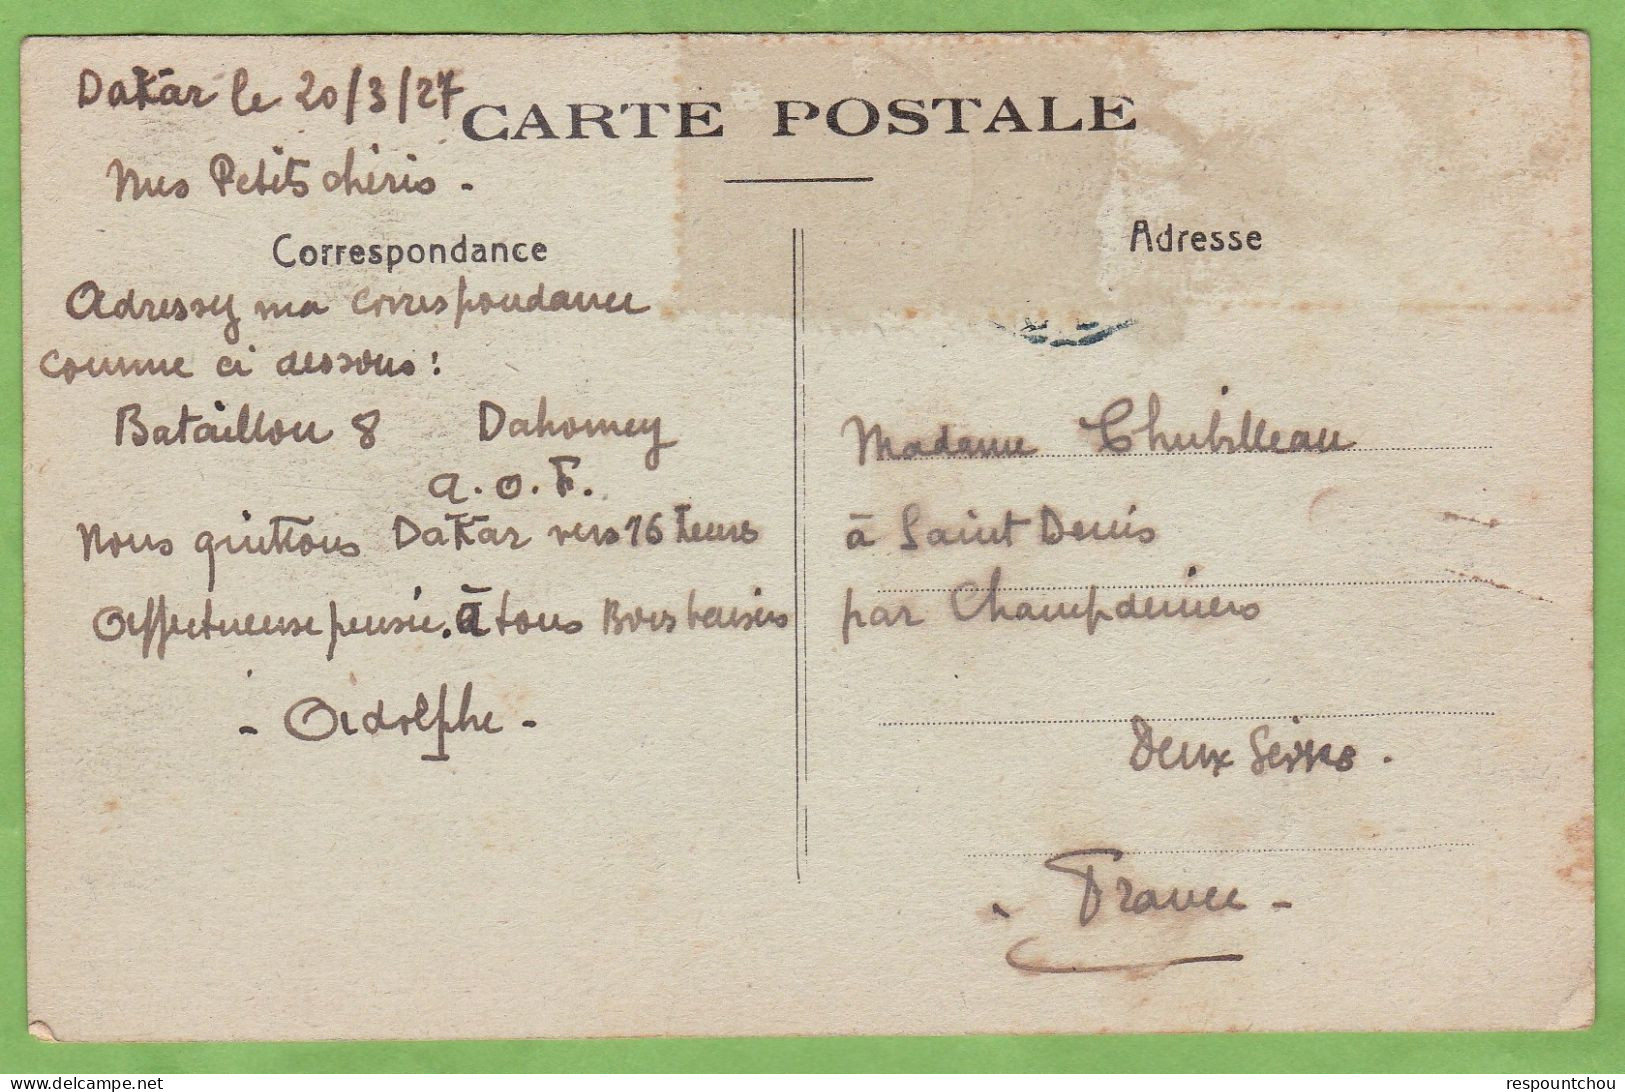 Dakar le 20/3/27
CARTE POSTALE
Mes Petits chéris -
Correspondance
Adressez ma correspondance
comme ci dessous :
Bataillon 8 Dahomey
a.o.F.
Nous quittons Dakar vers 16 heures
Affectueuse pensée. à tous Bons baisers
- Adolphe -
Adresse
Madame Chubilleau
à Saint Denis
par Champdeniers
Deux Sèvres.
- France -
delcampe.net
respountchou